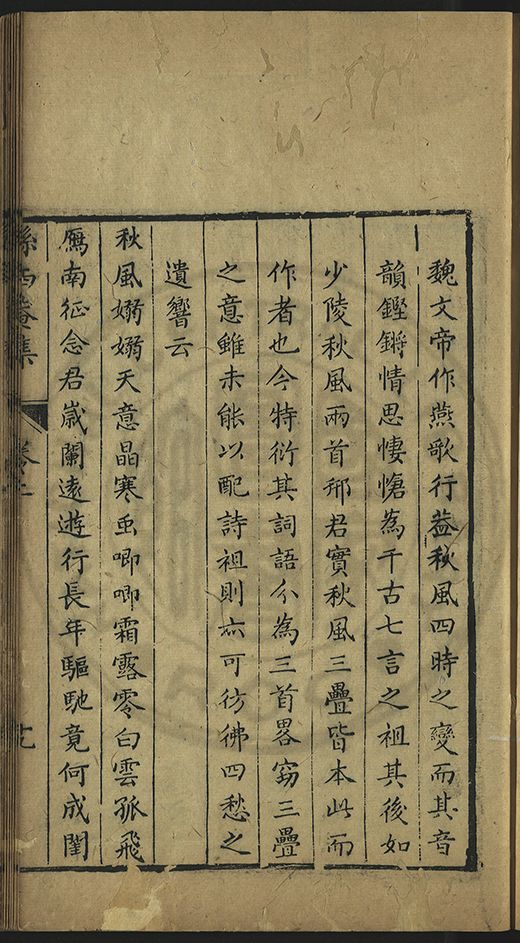 魏文帝作燕歌行葢秋風四時之變而其音
韻鏗鏘情思悽愴為千古七言之祖其後如
少陵秋風兩首邢君實秋風三疊皆本此而
作者也今特衍其詞語分為三首畧窃三疊
之意雖未能以配詩祖則亦可彷彿四愁之
遺響云
秋風嫋嫋天意晶寒虫唧唧霜露零白雲孤飛
鴈南征念君歲闌遠遊行長年驅馳竟何成閨
孫西菴集
卷二